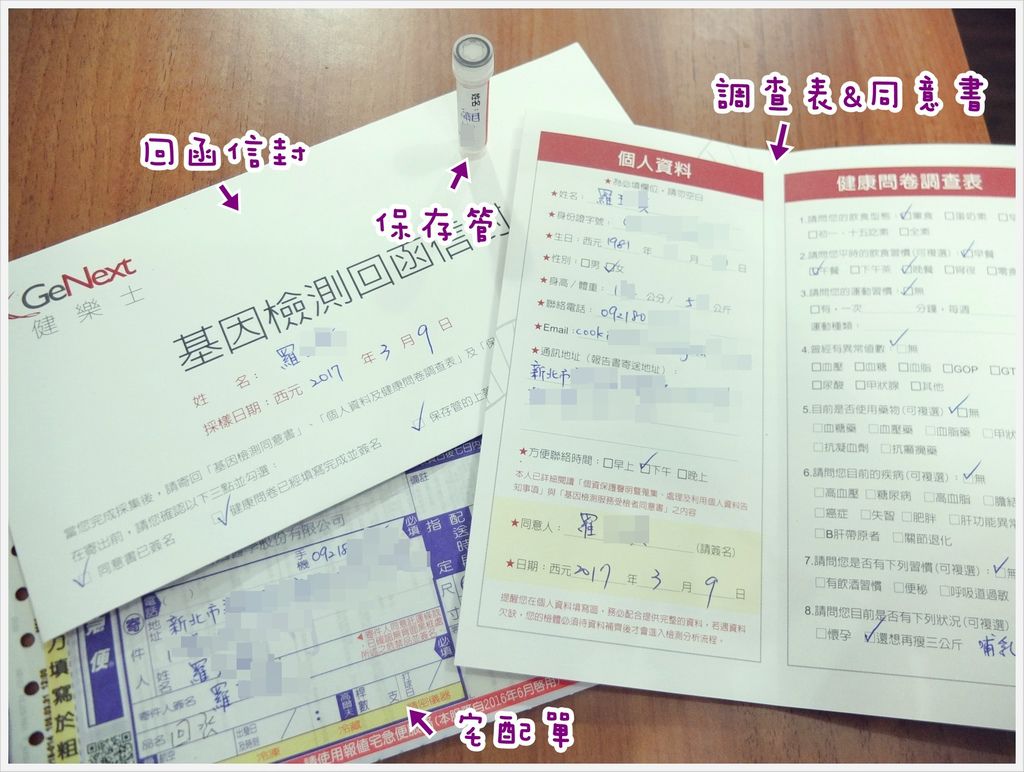 調查表&同意書
回函信封
保存管
宅配單
GeNext
健樂士
基因檢測回函信封
姓名:羅
採樣日期:西元2017年3月9日
當您完成採集後,請寄回「基因檢測同意書」、「個人資料及健康問卷調查表」及「保
在寄出前,請您確認以下三點並勾選:
✓同意書已簽名
✓健康問卷已經填寫完成並簽名
✓保存管的上
姓名:
個人資料
★為必填欄位,請勿空白
★姓名:羅
★身份證字號:
★生日:西元1981年 月 日
★性別:□男 ☑女
★身高/體重:1 公分/5 公斤
★聯絡電話:092180
★Email:cooki
★通訊地址(報告書寄送地址):
新北市
★方便聯絡時間:□早上 ☑下午 □晚上
本人已詳細閱讀「個資保護聲明暨蒐集、處理及利用個人資料告
知事項」與「基因檢測服務受檢者同意書」之內容
★同意人:羅 (請簽名)
★日期:西元2017年3月9日
提醒您在個人資料填寫區,務必配合提供完整的資料,若遇資料
欠缺,您的檢體必須待資料補齊後才會進入檢測分析流程。
健康問卷調查表
1.請問您的飲食型態:☑葷食 □蛋奶素
□初一、十五吃素 □全素
2.請問您平時的飲食習慣(可複選)☑早餐
☑午餐 □下午茶 ☑晚餐 □宵夜 □零食
3.請問您的運動習慣:☑無
□有,一次 分鐘,每週
運動種類:
4.曾經有異常值數:☑無
□血壓 □血糖 □血脂 □GOP □GT
□尿酸 □甲狀腺 □其他
5.目前是否使用藥物(可複選)☑無
□血糖藥 □血壓藥 □血脂藥 □甲狀
□抗凝血劑 □抗癲癇藥
6.請問您目前的疾病(可複選):☑無
□高血壓 □糖尿病 □高血脂 □膽結
□癌症 □失智 □肥胖 □肝功能異常
□B肝帶原者 □關節退化
7.請問您是否有下列習慣(可複選):☑無
□有飲酒習慣 □便秘 □呼吸道過敏
8.請問您目前是否有下列狀況(可複選)
□懷孕 ☑還想再瘦三公斤 哺乳
股份有限公司
手機09218
必填
指定
配送時
備註
電話
地址 新北市
寄件人
姓名 羅
寄件人簽名 羅
品名 回水
宅急便
方填寫於粗
必填
尺寸
冷凍
冷藏
精密儀器
請使用報值宅急便服
(本
自2016年6月啓用)